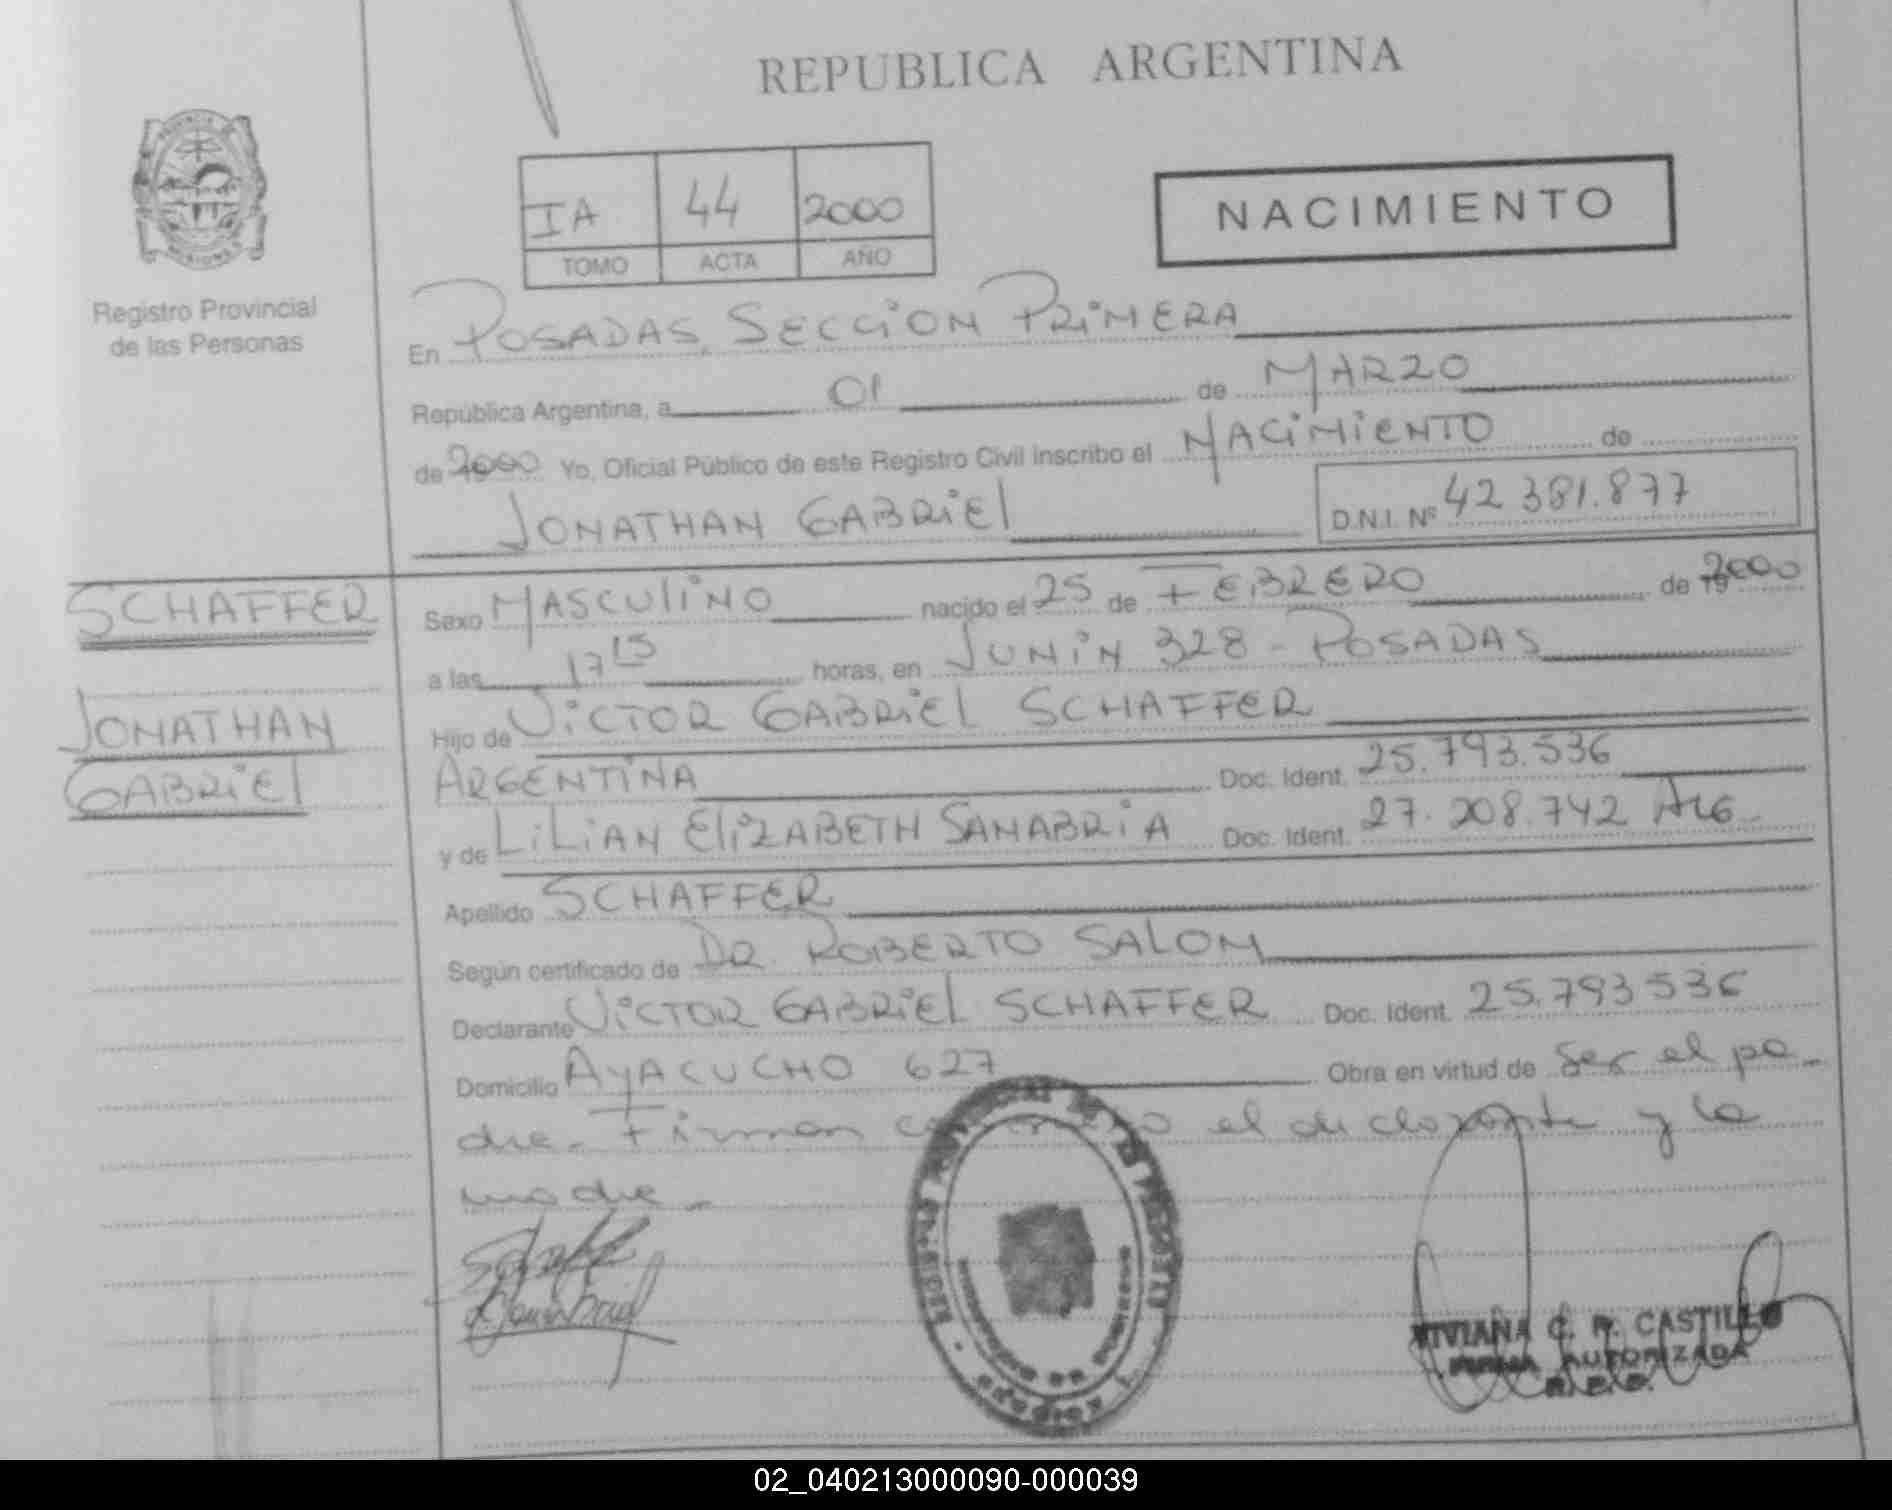 REPUBLICA ARGENTINA
PROVINCIA DE MISIONES
Registro Provincial
de las Personas
IA 44 2000
TOMO ACTA AÑO
NACIMIENTO
En POSADAS, SECCION PRIMERA
República Argentina, a 01 de MARZO
de 2000 Yo, Oficial Público de este Registro Civil inscribo el NACIMIENTO de
JONATHAN GABRIEL D.N.I. Nº 42 381.877
SCHAFFER
JONATHAN
GABRIEL
Sexo MASCULINO nacido el 25 de FEBRERO de 192000
a las 17 15 horas, en JUNIN 328 - POSADAS
Hijo de VICTOR GABRIEL SCHAFFER
ARGENTINA Doc. Ident. 25.793.536
y de LILIAN ELIZABETH SANABRIA Doc. Ident. 27.208.742 ARG-
Apellido SCHAFFER
Según certificado de DR. ROBERTO SALOM
Declarante VICTOR GABRIEL SCHAFFER Doc. Ident. 25.793 536
Domicilio AYACUCHO 627 Obra en virtud de ser el pa-
dre. Firman conmigo el declarante y la
madre -
VIVIANA C. R. CASTILLO
FIRMA AUTORIZADA
02_040213000090-000039